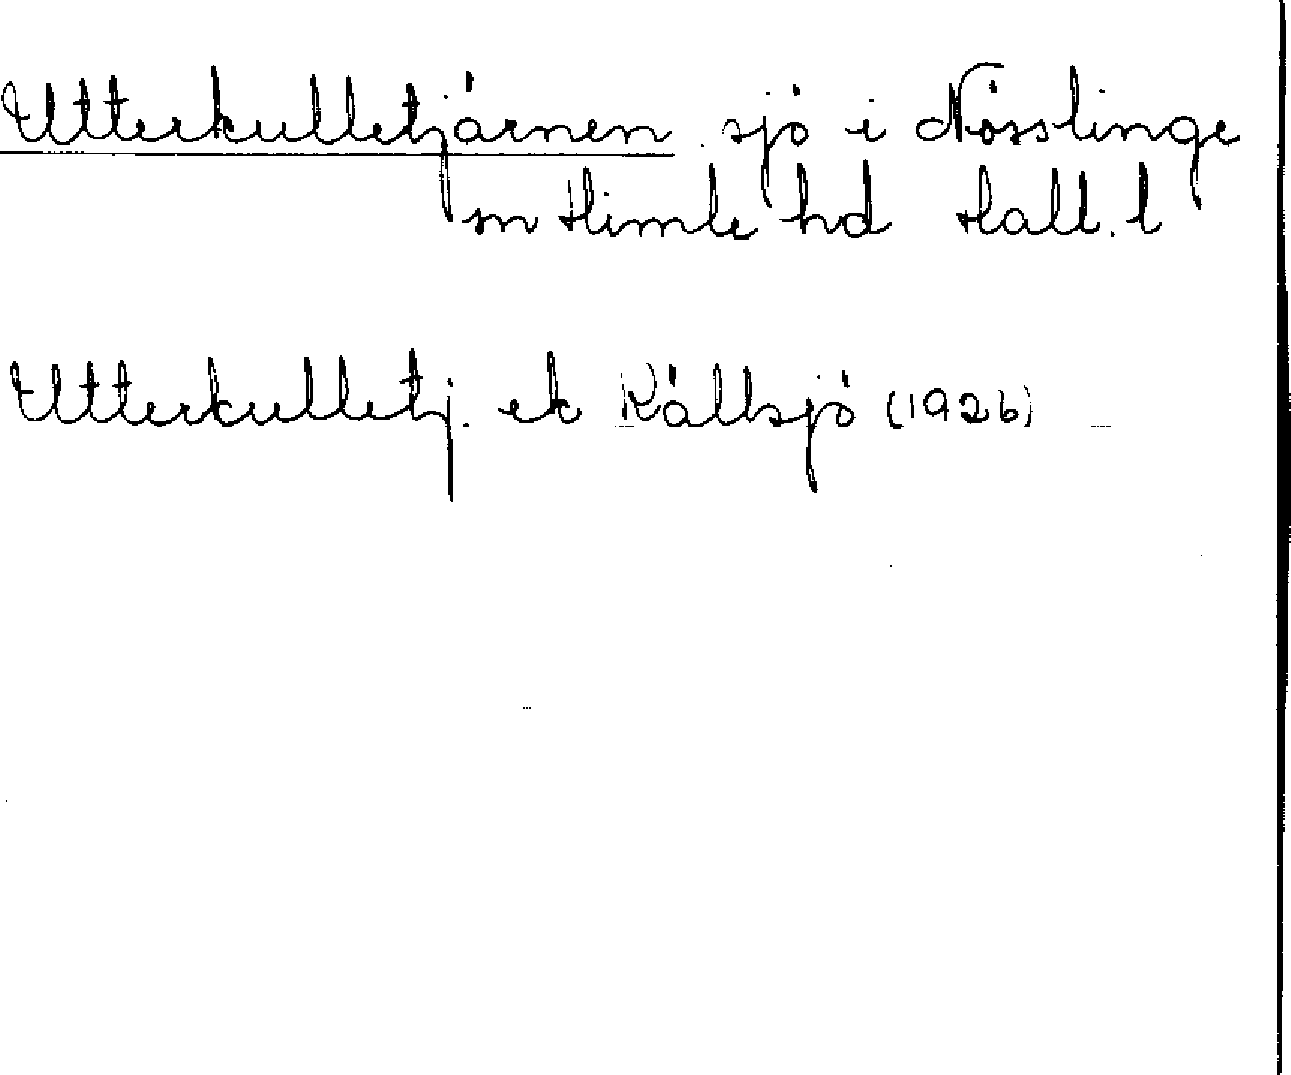 Utterkulletjärnen sjö i Nösslinge
sn Himle hd Hall. l
Utterkulletj. ek Källsjö (1926)